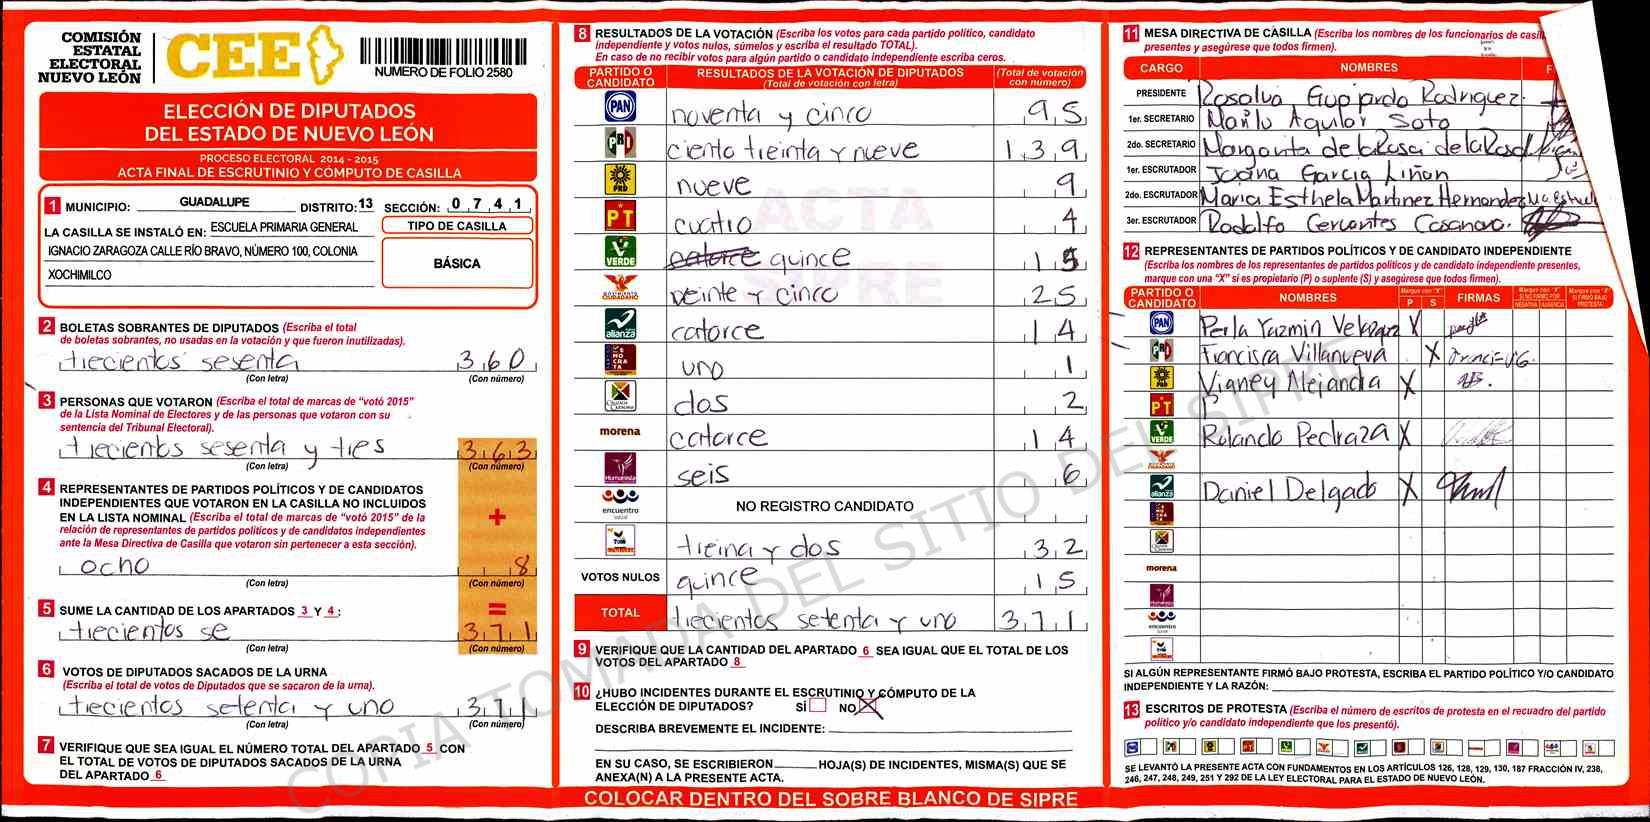 COMISIÓN
ESTATAL
ELECTORAL
NUEVO LEÓN
CEE
NUMERO DE FOLIO 2580
ELECCIÓN DE DIPUTADOS
DEL ESTADO DE NUEVO LEÓN
PROCESO ELECTORAL 2014 - 2015
ACTA FINAL DE ESCRUTINIO Y CÓMPUTO DE CASILLA
1 MUNICIPIO: GUADALUPE DISTRITO: 13 SECCIÓN: 0 7 4 1
LA CASILLA SE INSTALÓ EN: ESCUELA PRIMARIA GENERAL
IGNACIO ZARAGOZA CALLE RÍO BRAVO, NÚMERO 100, COLONIA
XOCHIMILCO
TIPO DE CASILLA
BÁSICA
2 BOLETAS SOBRANTES DE DIPUTADOS (Escriba el total
de boletas sobrantes, no usadas en la votación y que fueron inutilizadas).
trecientos sesenta 3 6 0
(Con letra) (Con número)
3 PERSONAS QUE VOTARON (Escriba el total de marcas de “votó 2015”
de la Lista Nominal de Electores y de las personas que votaron con su
sentencia del Tribunal Electoral).
trecientos sesenta y tres 3 6 3
(Con letra) (Con número)
4 REPRESENTANTES DE PARTIDOS POLÍTICOS Y DE CANDIDATOS
INDEPENDIENTES QUE VOTARON EN LA CASILLA NO INCLUIDOS
EN LA LISTA NOMINAL (Escriba el total de marcas de “votó 2015” de la
relación de representantes de partidos políticos y de candidatos independientes
ante la Mesa Directiva de Casilla que votaron sin pertenecer a esta sección).
+
ocho 8
(Con letra) (Con número)
5 SUME LA CANTIDAD DE LOS APARTADOS 3 Y 4 : =
trecientos se 3 7 1
(Con letra) (Con número)
6 VOTOS DE DIPUTADOS SACADOS DE LA URNA
(Escriba el total de votos de Diputados que se sacaron de la urna).
trecientos setenta y uno 3 7 1
(Con letra) (Con número)
7 VERIFIQUE QUE SEA IGUAL EL NÚMERO TOTAL DEL APARTADO 5 CON
EL TOTAL DE VOTOS DE DIPUTADOS SACADOS DE LA URNA
DEL APARTADO 6
8 RESULTADOS DE LA VOTACIÓN (Escriba los votos para cada partido político, candidato
independiente y votos nulos, súmelos y escriba el resultado TOTAL).
En caso de no recibir votos para algún partido o candidato independiente escriba ceros.
PARTIDO O CANDIDATO
RESULTADOS DE LA VOTACIÓN DE DIPUTADOS
(Total de votación con letra)
(Total de votación con número)
PAN noventa y cinco 9 5
PRD ciento treinta y nueve 1 3 9
PRD nueve 9
PT cuatro 4
VERDE catorce quince 1 5
MOVIMIENTO CIUDADANO veinte y cinco 25
alianza catorce 1 4
uno 1
dos 2
morena catorce 1 4
Humanista seis 6
encuentro social NO REGISTRO CANDIDATO
treina y dos 3 2
VOTOS NULOS quince 1 5
TOTAL trecientos setenta y uno 3 7 1
ACTA
SIPRE
9 VERIFIQUE QUE LA CANTIDAD DEL APARTADO 6 SEA IGUAL QUE EL TOTAL DE LOS
VOTOS DEL APARTADO 8
10 ¿HUBO INCIDENTES DURANTE EL ESCRUTINIO Y CÓMPUTO DE LA
ELECCIÓN DE DIPUTADOS? SÍ NO X
DESCRIBA BREVEMENTE EL INCIDENTE:
EN SU CASO, SE ESCRIBIERON HOJA(S) DE INCIDENTES, MISMA(S) QUE SE
ANEXA(N) A LA PRESENTE ACTA.
COLOCAR DENTRO DEL SOBRE BLANCO DE SIPRE
11 MESA DIRECTIVA DE CASILLA (Escriba los nombres de los funcionarios de casil
presentes y asegúrese que todos firmen).
CARGO NOMBRES F
PRESIDENTE Rosalva Guajardo Rodriguez.
1er. SECRETARIO Marilu Aguilar Soto
2do. SECRETARIO Margarita de la Rosa de la Rosa
1er. ESCRUTADOR Juana Garcia Liñan
2do. ESCRUTADOR Maria Esthela Martinez Hernandez
3er. ESCRUTADOR Rodolfo Cervantes Casanova.
12 REPRESENTANTES DE PARTIDOS POLÍTICOS Y DE CANDIDATO INDEPENDIENTE
(Escriba los nombres de los representantes de partidos políticos y de candidato independiente presentes,
marque con una “X” si es propietario (P) o suplente (S) y asegúrese que todos firmen).
PARTIDO O CANDIDATO NOMBRES Marque con “X” P S FIRMAS
Marque con “X” SI NO FIRMÓ POR NEGATIVA AUSENCIA
Marque con “X” SI FIRMÓ BAJO PROTESTA
PAN Perla Yazmin Velazquez X
Francisca Villanueva X
PRD Vianey Alejandra X
PT
VERDE Rolando Pedraza X
CIUDADANO
alianza Daniel Delgado X
morena
Humanista
encuentro
SI ALGÚN REPRESENTANTE FIRMÓ BAJO PROTESTA, ESCRIBA EL PARTIDO POLÍTICO Y/O CANDIDATO
INDEPENDIENTE Y LA RAZÓN:
13 ESCRITOS DE PROTESTA (Escriba el número de escritos de protesta en el recuadro del partido
político y/o candidato independiente que los presentó).
SE LEVANTÓ LA PRESENTE ACTA CON FUNDAMENTOS EN LOS ARTÍCULOS 126, 128, 129, 130, 187 FRACCIÓN IV, 238,
246, 247, 248, 249, 251 Y 292 DE LA LEY ELECTORAL PARA EL ESTADO DE NUEVO LEÓN.
COPIA TOMADA DEL SITIO DEL SIPRE